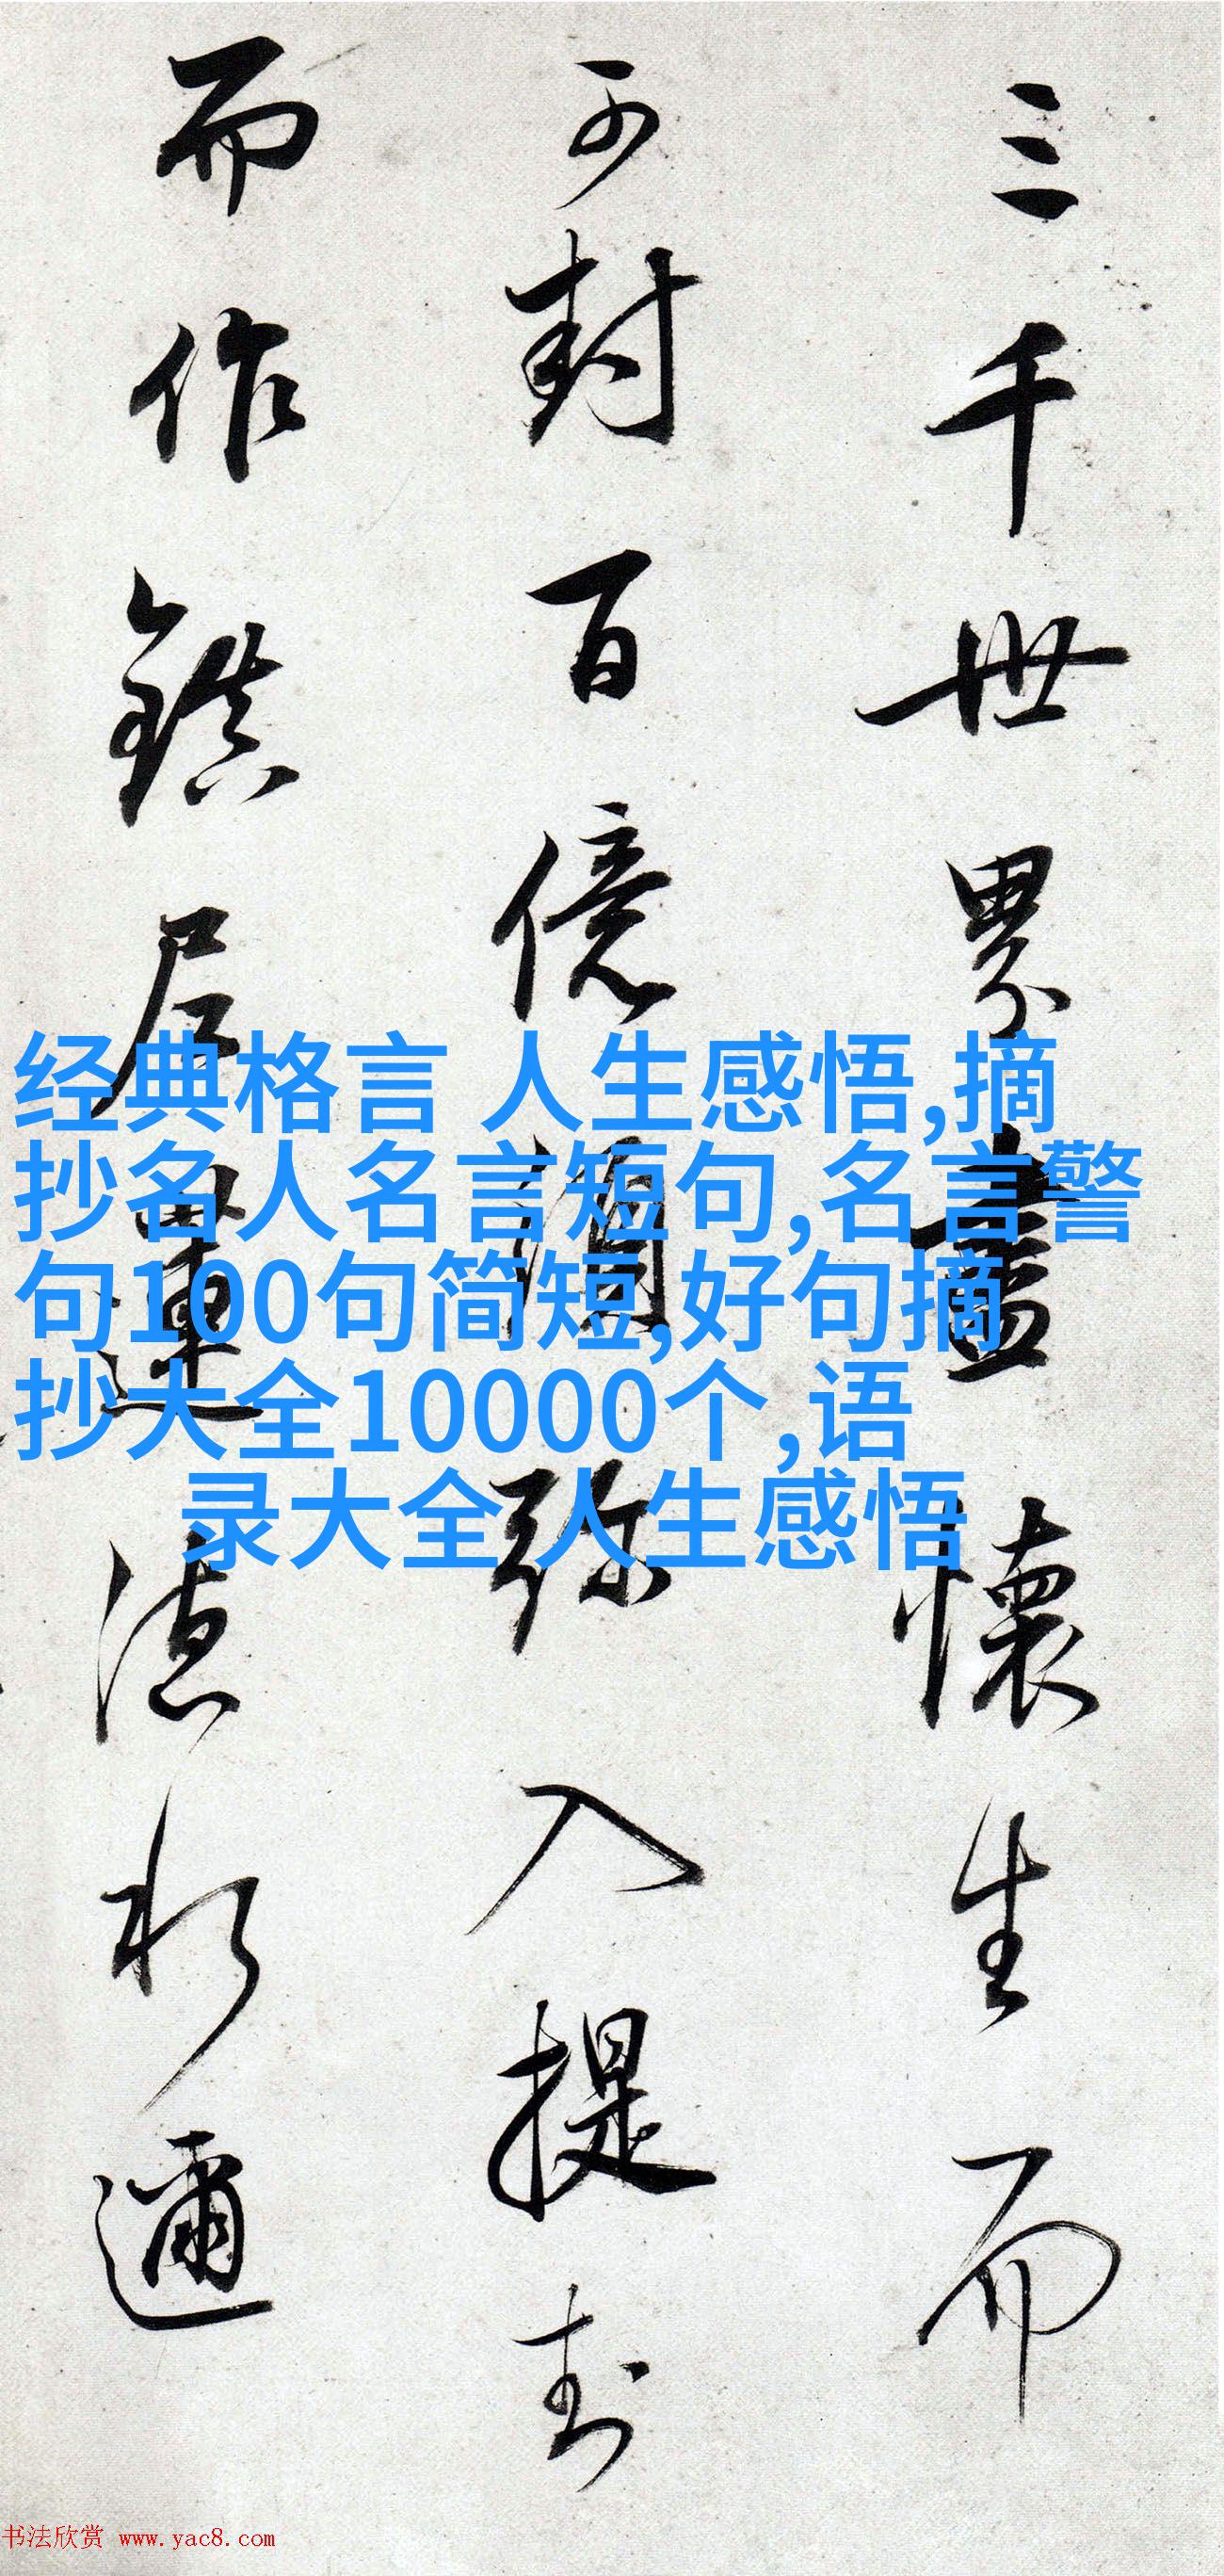 三千世界盡懷生而
可封百億須弥入提封
而作鎮尼連德水邇
经典格言 人生感悟,摘
抄名人名言短句,名言警
句100句简短,好句摘
抄大全10000个,语
录大全 人生感悟
书法欣赏 www.yac8.com